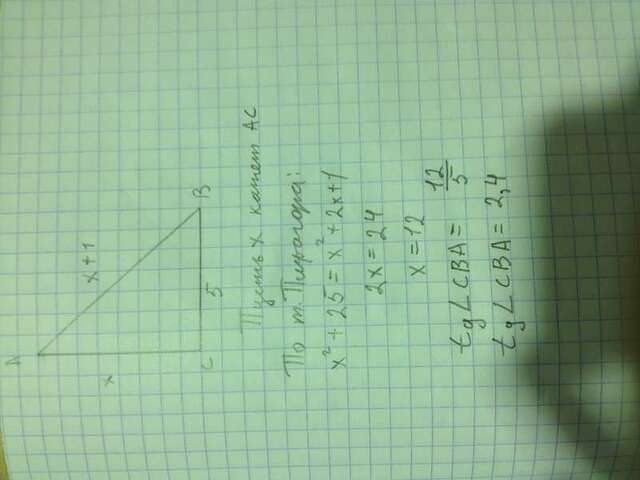 A
x
x+1
C
5
B
Пусть x катет AC
По т. Пифагора:
x² + 25 = x² + 2x+1
2x = 24
x = 12
tg∠CBA = 12/5
tg∠CBA = 2,4